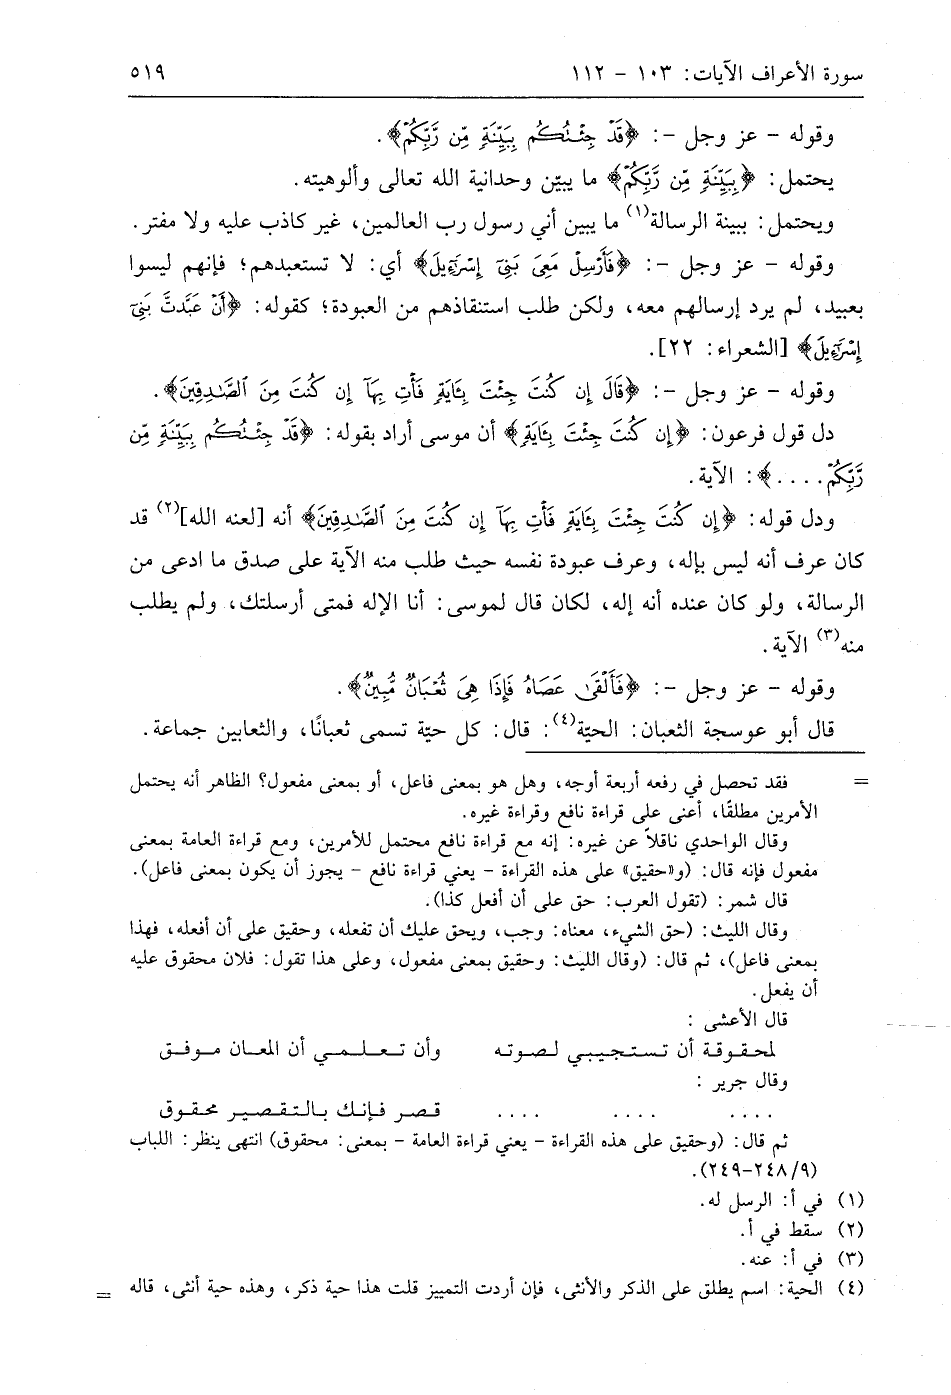 سورة الأعراف الآيات: ١٠٣ - ١١٢
٥١٩
وقوله - عز وجل -: ﴿قَدْ جِئْتُكُم بِبَيِّنَةٍ مِّن رَّبِّكُمْ﴾.
يحتمل: ﴿بِبَيِّنَةٍ مِّن رَّبِّكُمْ﴾ ما يبيّن وحدانية الله تعالى وألوهيته.
ويحتمل: ببينة الرسالة(١) ما يبين أني رسول رب العالمين، غير كاذب عليه ولا مفتر.
وقوله - عز وجل -: ﴿فَأَرْسِلْ مَعِىَ بَنِىٓ إِسْرَٰٓءِيلَ﴾ أي: لا تستعبدهم؛ فإنهم ليسوا
بعبيد، لم يرد إرسالهم معه، ولكن طلب استنقاذهم من العبودة؛ كقوله: ﴿أَنْ عَبَّدتَّ بَنِىٓ
إِسْرَٰٓءِيلَ﴾ [الشعراء: ٢٢].
وقوله - عز وجل -: ﴿قَالَ إِن كُنتَ جِئْتَ بِـَٔايَةٍ فَأْتِ بِهَآ إِن كُنتَ مِنَ ٱلصَّٰدِقِينَ﴾.
دل قول فرعون: ﴿إِن كُنتَ جِئْتَ بِـَٔايَةٍ﴾ أن موسى أراد بقوله: ﴿قَدْ جِئْتُكُم بِبَيِّنَةٍ مِّن
رَّبِّكُمْ....﴾: الآية.
ودل قوله: ﴿إِن كُنتَ جِئْتَ بِـَٔايَةٍ فَأْتِ بِهَآ إِن كُنتَ مِنَ ٱلصَّٰدِقِينَ﴾ أنه [لعنه الله](٢) قد
كان عرف أنه ليس بإله، وعرف عبودة نفسه حيث طلب منه الآية على صدق ما ادعى من
الرسالة، ولو كان عنده أنه إله، لكان قال لموسى: أنا الإله فمتى أرسلتك، ولم يطلب
منه(٣) الآية.
وقوله - عز وجل -: ﴿فَأَلْقَىٰ عَصَاهُ فَإِذَا هِىَ ثُعْبَانٌ مُّبِينٌ﴾.
قال أبو عوسجة الثعبان: الحيّة(٤): قال: كل حيّة تسمى ثعبانًا، والثعابين جماعة.
= فقد تحصل في رفعه أربعة أوجه، وهل هو بمعنى فاعل، أو بمعنى مفعول؟ الظاهر أنه يحتمل
الأمرين مطلقًا، أعنى على قراءة نافع وقراءة غيره.
وقال الواحدي ناقلاً عن غيره: إنه مع قراءة نافع محتمل للأمرين، ومع قراءة العامة بمعنى
مفعول فإنه قال: (و«حقيق» على هذه القراءة - يعني قراءة نافع - يجوز أن يكون بمعنى فاعل).
قال شمر: (تقول العرب: حق على أن أفعل كذا).
وقال الليث: (حق الشيء، معناه: وجب، ويحق عليك أن تفعله، وحقيق على أن أفعله، فهذا
بمعنى فاعل)، ثم قال: (وقال الليث: وحقيق بمعنى مفعول، وعلى هذا تقول: فلان محقوق عليه
أن يفعل.
قال الأعشى :
لمحقوقة أن تستجيبي لصوته وأن تعلمي أن المعان موفق
وقال جرير :
.... .... .... قصر فإنك بالتقصير محقوق
ثم قال: (وحقيق على هذه القراءة - يعني قراءة العامة - بمعنى: محقوق) انتهى ينظر: اللباب
(٩/ ٢٤٨-٢٤٩).
(١) في أ: الرسل له.
(٢) سقط في أ.
(٣) في أ: عنه.
(٤) الحية: اسم يطلق على الذكر والأنثى، فإن أردت التمييز قلت هذا حية ذكر، وهذه حية أنثى، قاله =